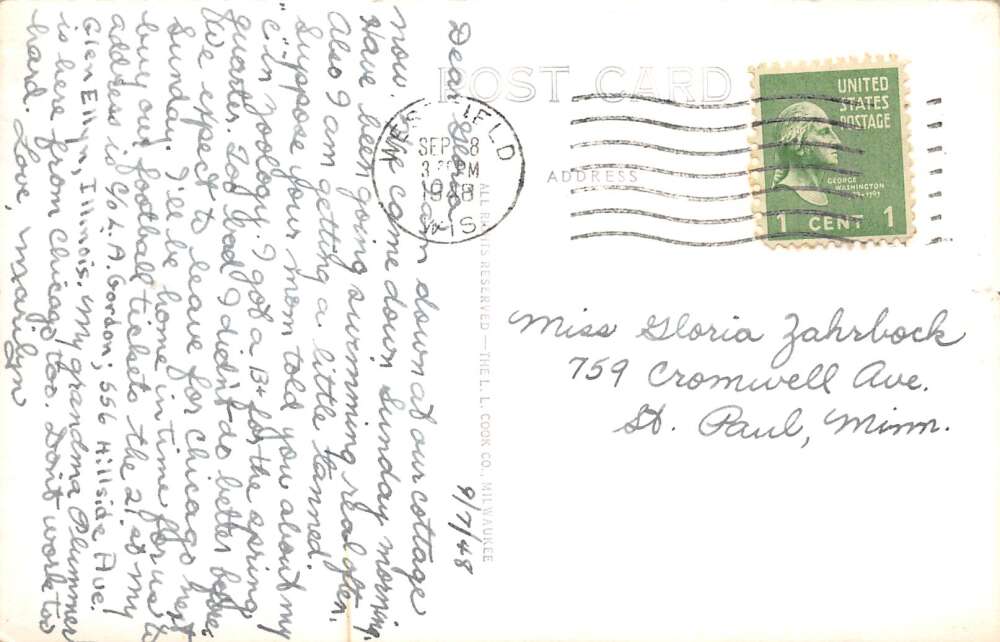 POST CARD
ADDRESS
UNITED
STATES
POSTAGE
GEORGE
WASHINGTON
1 CENT 1
SEP 8
PM
1948
WIS
ALL RIGHTS RESERVED — THE L. L. COOK CO., MILWAUKEE
9/7/48
Dear Gloria,
I am down at our cottage
now. We came down Sunday morning.
Have been going swimming real often.
Also I am getting a little tanned.
Suppose your mom told you about my
"C" in Zoology. I got a B+ for the spring
quarter. Too bad I didn't do better before.
We expect to leave for Chicago next
Sunday. I'll be home in time for us to
buy our football tickets the 21st. My
address is c/o L. A. Gordon; 556 Hillside Ave.
Glen Ellyn, Illinois. My grandma Plummer
is here from Chicago too. Don't work too
hard. Love, Marilyn
Miss Gloria Zahrbock
759 Cromwell Ave.
St. Paul, Minn.